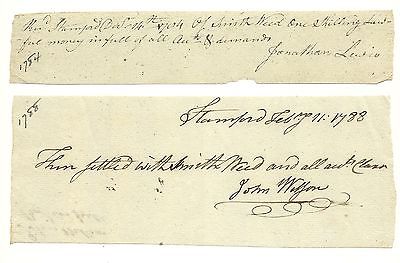 Rec'd Stamford Oct 14th 1784 Of Smith Weed One Shilling Law
ful money in full of all Acts & demands
Jonathan Lewis
1784
1788
Stamford Feby 11: 1788
Then settled with Smith Weed and all acts Clear
John Wilson